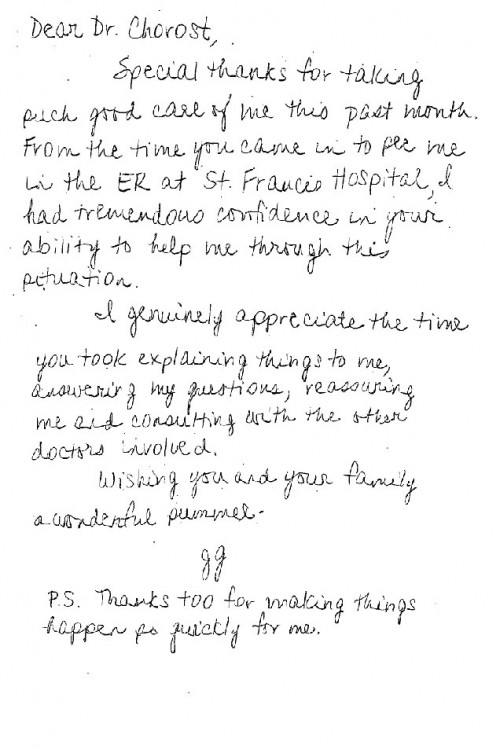 Dear Dr. Chorost,
Special thanks for taking
such good care of me this past month.
From the time you came in to see me
in the ER at St. Francis Hospital, I
had tremendous confidence in your
ability to help me through this
situation.
I genuinely appreciate the time
you took explaining things to me,
answering my questions, reassuring
me and consulting with the other
doctors involved.
Wishing you and your family
a wonderful summer.
gg
P.S. Thanks too for making things
happen so quickly for me.